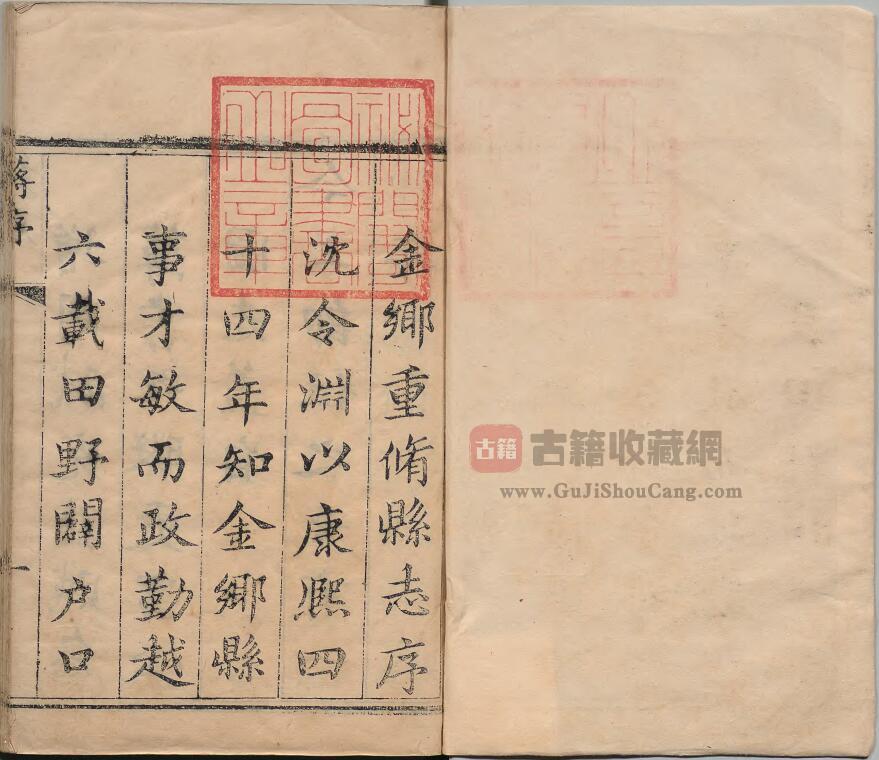 金鄉重脩縣志序
沈令淵以康熙四
十四年知金鄉縣
事才敏而政勤越
六載田野闢户口
蔣序
一
古籍
古籍收藏網
www.GuJiShouCang.com